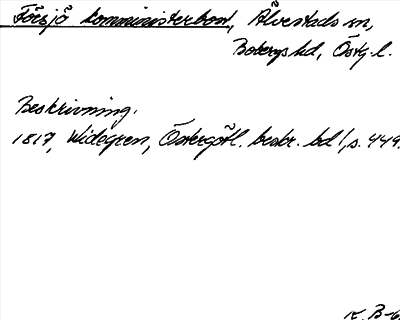 Försjö komministerbost, Älvestads sn,
Bobergs hd, Östg. l.
Beskrivning.
1817, Widegren, Östergötl. beskr. bd 1, s. 449.
K. B-6